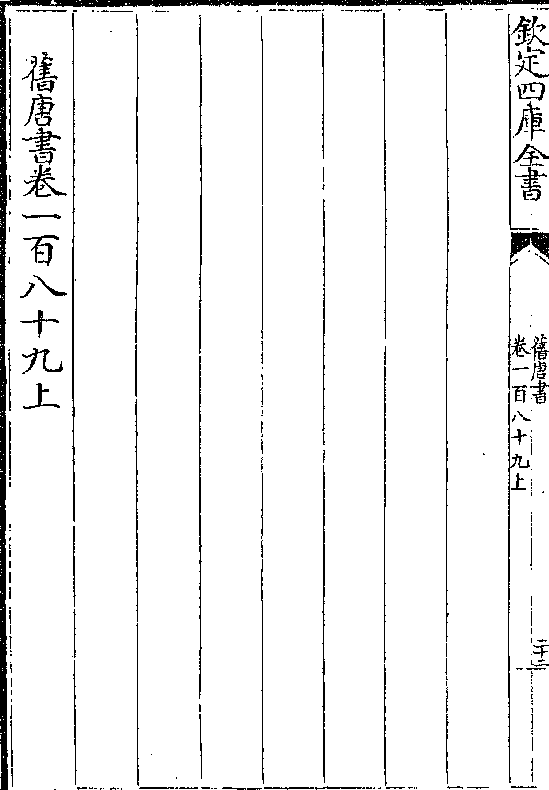 欽定四庫全書
舊唐書
卷一百八十九上
二十二
舊唐書卷一百八十九上